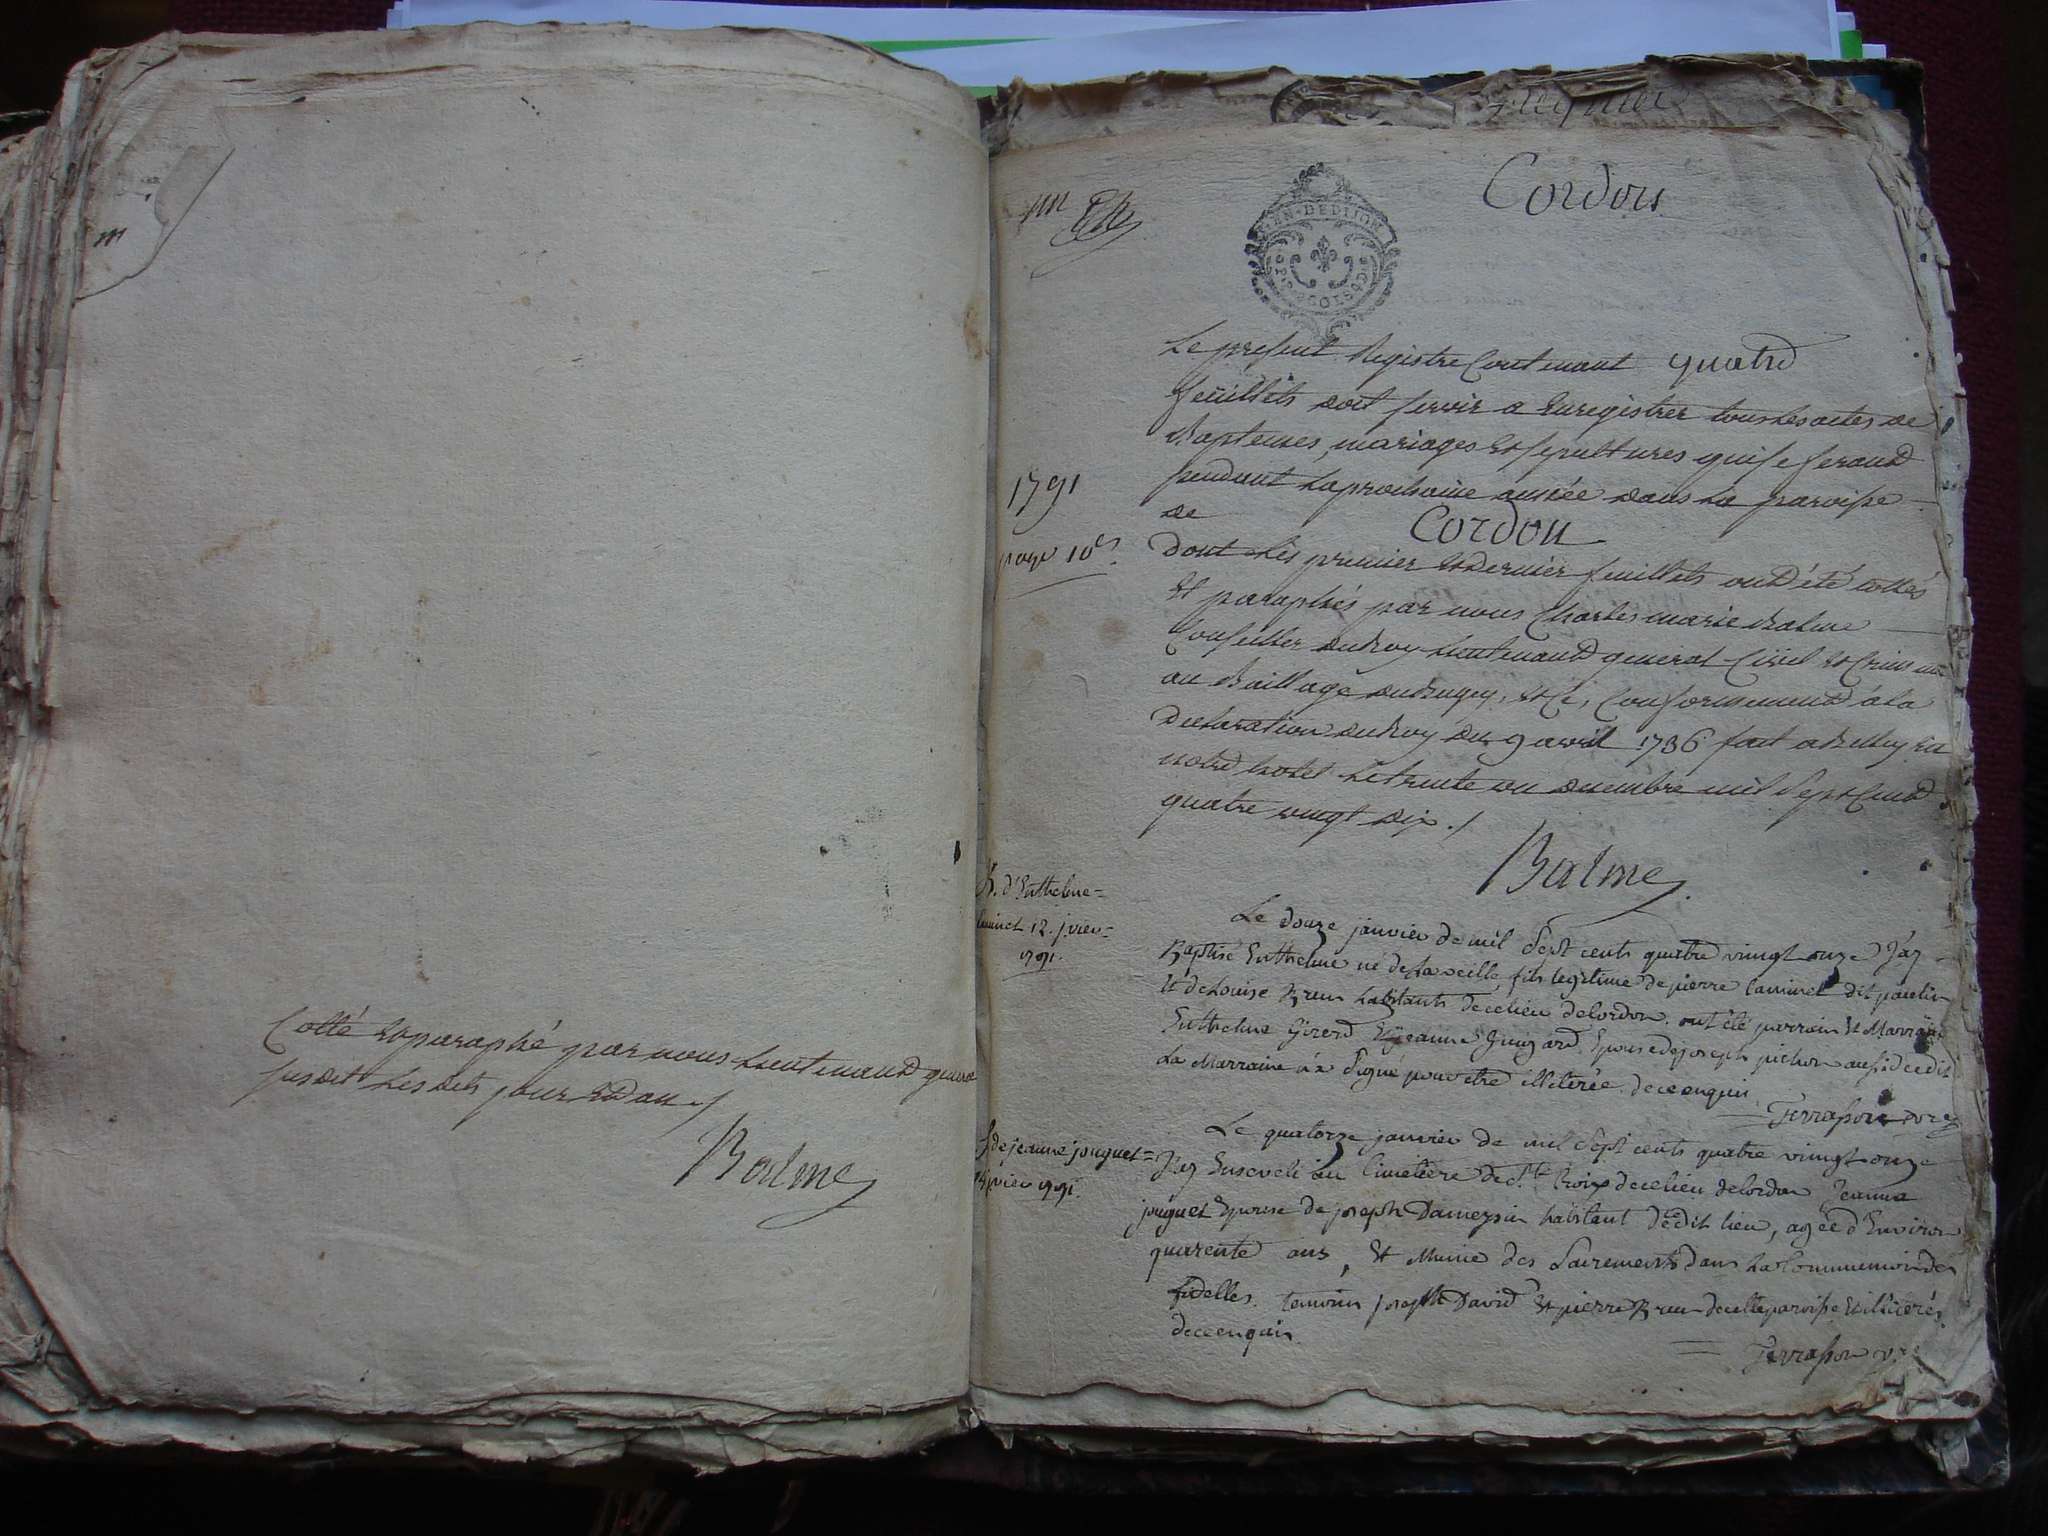 Cotté et paraphé par nous Lieutenand general
susdit Lesdits jour et an ./
Balme
Cordon
GEN · DE DIJON
1791
page 10e.
Le present Registre Contenant quatre
feüillets doit servir a Enregistrer tous Les actes de
Baptemes, mariages et sepultures qui se ferond
pendant La prochaine année dans La paroisse
de Cordon
dont Les premier et dernier feuillets ond été cottés
Et paraphés par nous Charles marie Balme
Conseiller du Roy Lieutenand general Civil et Crimin
au Baillage du Bugey, et Ce, Conformemend a la
declaration du Roy du 9 avril 1736 fait a Belley En
notre hotel Le trente un decembre mil sept Cend
quatre vingt dix ./
Balme
B. d'Enthelme
Caminet 12. jvier
1791.
Le douze janvier de mil Sept cents quatre vingt onze J'ay
Baptisé Enthelme né de La veille, fils legitime de pierre Caminet dit paulin
Et de Louise Breu habitants de ce lieu de Cordon. ont été parrain Et Marraine
Enthelme Girerd Et jeanne Guigard Epouse de joseph pichon aussi de ce dit
La Marraine n'a Signé pour être illiterée de ce enquis
Terrasson vre
S. de jeanne jouguet
14 jvier 1791.
Le quatorze janvier de mil Sept cents quatre vingt onze
J'ay Enseveli au Cimetiere de Ste. Croix de ce lieu de Cordon Jeanne
jouguet Epouse de joseph Dameysin habitant de ce dit lieu, agée d'Environ
quarente ans, Et Munie des Sacrements dans La Communion des
fidelles. temoins joseph David Et pierre Breu de cette paroisse Et illiterés
de ce enquis.
Terrasson vre